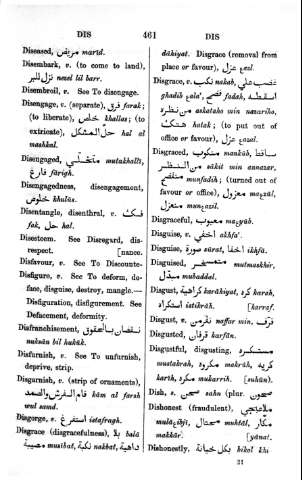 DIS 461 DIS
Diseased, مريض marīd.
Disembark, v. (to come to land),
نزل للبر nesel lil barr.
Disembroil, v. See To Disengage.
Disengage, v. (separate), فرق farak;
(to liberate), خلص khallas; (to
extricate), حل المشكل hal al
mashkal.
Disengaged, متخلّي mutakhallī,
فارغ fārigh.
Disengagedness, disengagement,
خلوص khulūs.
Disentangle, disenthral, v. فك
fak, حل hal.
Disesteem. See Disregard, dis-
respect. [nance.
Disfavour, v. See To Discounte-
Disfigure, v. See To deform, de-
face, disguise, destroy, mangle.—
Disfiguration, disfigurement. See
Defacement, deformity.
Disfranchisement, نقصان بالحقوق
nuksān bil hukūk.
Disfurnish, v. See To unfurnish,
deprive, strip.
Disgarnish, v. (strip of ornaments),
kām al farsh
wul samd.
Disgorge, v. استفرغ istafragh.
Disgrace (disgracefulness), بلا balā
مصيبة musībat, نكبة nakbat,
dākiyat. Disgrace (removal from
place or favour), عزل ezel.
Disgrace, v. نكب nakab, غضب علي
ghadib ɛala', فضح fadah, اسقطه
من نظره askataho win nasariho,
هتك hatak; (to put out of
office or favour), عزل ɛazel.
Disgraced, منكوب mankūb, ساقط
من النظر sākit win annazar,
منفضح munfadih; (turned out of
favour or office), معزول maɛzūl,
منعزل munɛazil.
Disgraceful, معيوب maɛyūb.
Disguise, v. أخفي akhfa'.
Disguise, صورة sūrat, اخفا ikhfā.
Disguised, mutmaskhir,
مبدل mubaddal.
Disgust, كراهية karāhiyat, كره karah,
استكراه istikrāh. [karraf.
Disgust, v. نفر من naffar win, قرف
Disgusted, قرفان karfān.
Disgustful, disgusting, مستكره
mustakrah, مكروه makrūh, كريه
karīh, مكره mukarrih. [suhūn].
Dish, s. صحن sahn (plur. صحون
Dishonest (fraudulent), ملاعبجي
mulāɛibjī, محتال muhtāl, مكار
makkār. [yāna'.
Dishonestly, بكل خيانة bikol khi
21